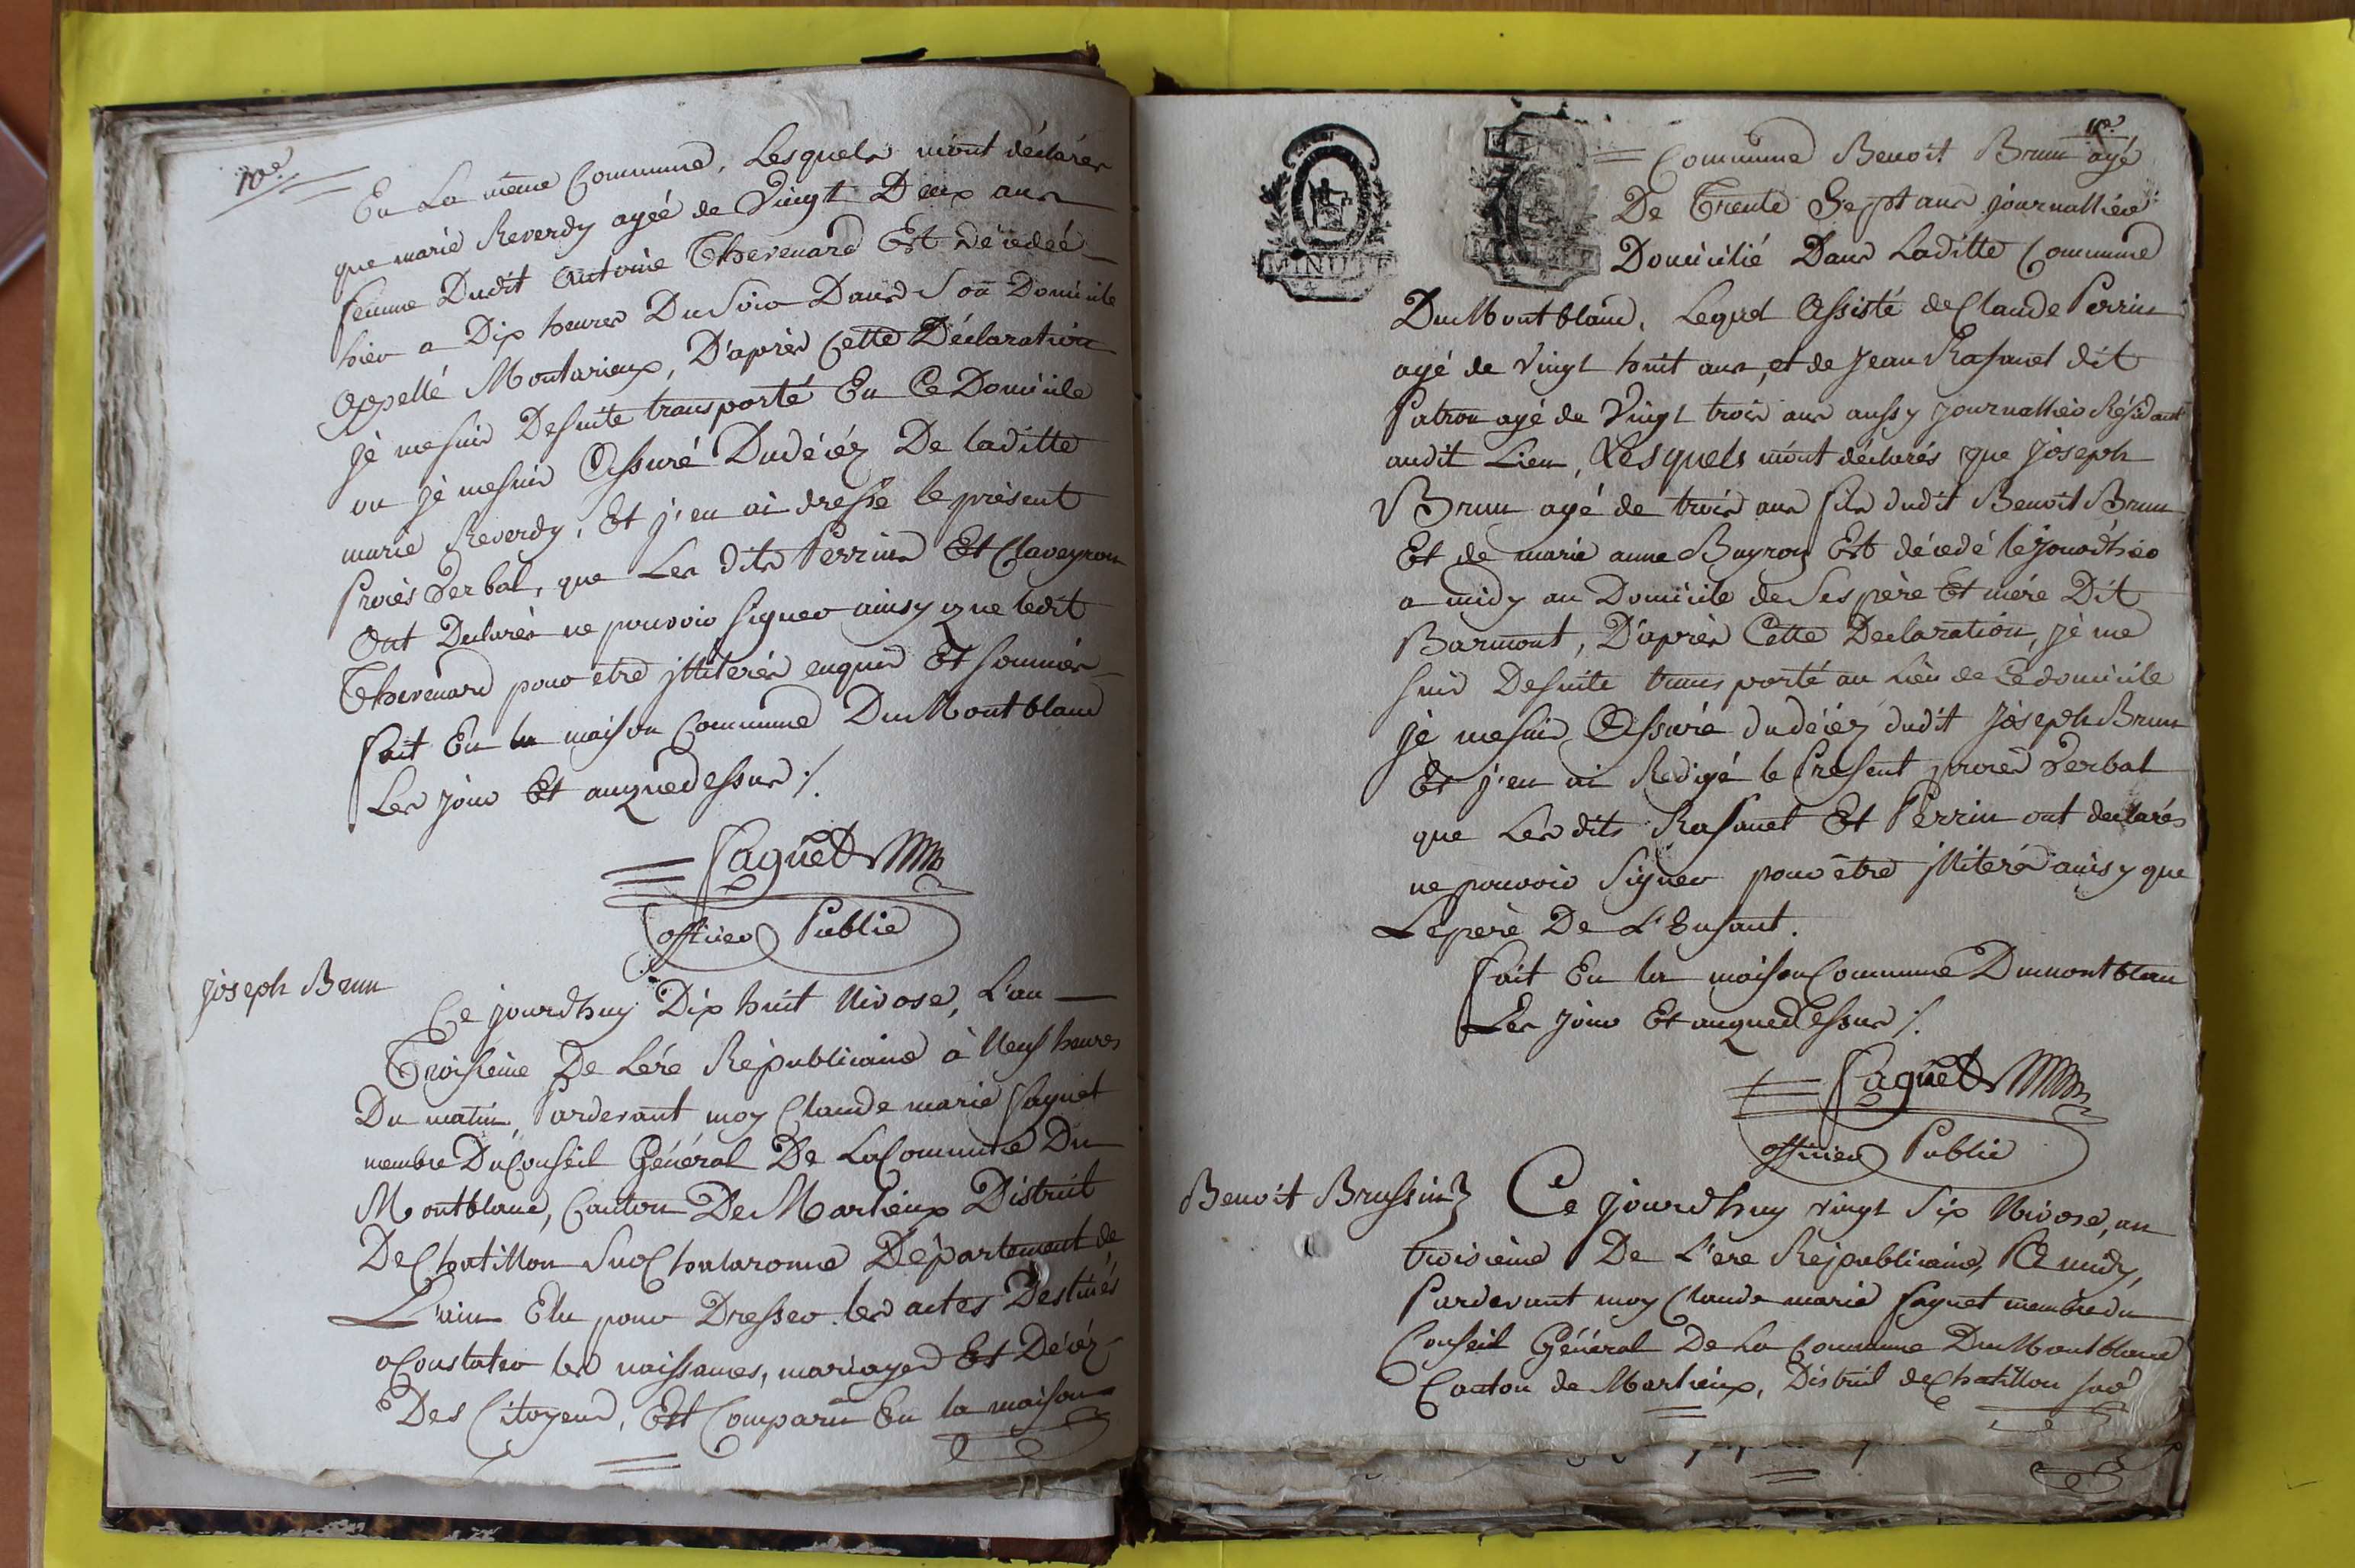 10e.
En La même Commune, Lesquels m'ont déclarés
que marie Reverdy agéé de Vingt Deux ans
femme Dudit Antoine Thevenard Est décedéé
hier a Dix heures Du Soir Dans Son Domicile
Appellé Montarieux, D'après Cette Déclaration
je mesuis Desuite transporté En Ce Domicile
ou je mesuis Assuré Dudécéz De laditte
marie Reverdy, Et j'en ai dressé le présent
Procès Verbal, que Les dits Perrins Et Claveyron
Ont Declarés ne pouvoir Signer ainsy que ledit
Thevenard pour etre jlliterés enquis Et Sommés
fait En la maison Commune DuMontblanc
Les jour Et anquedessus ./.
Saguet
officier Public
Joseph Brun
Ce jourdhuy Dix huit Nivose, L'an
Troisième De Lére Républicaine à Neuf heures
Du matin, Pardevant moy Claude marie Saguet
membre DuConseil Général De LaCommune Du
Montblanc, Canton De Marlieux District
DeChatillon SurChalaronne Département de
L'ain Elu pour Dresser les actes Destinés
aConstater les naissances, mariages Et Décéz
Des Citoyens, Est Comparu En la maison
11e.
Commune Benoit Brun agé
De Trente Sept ans journallier
Domicilié Dans Laditte Commune
MINUTE
DuMontblanc, Lequel Assisté deClaude Perrin
agé de Vingt huit ans, et de Jean Rasanet dit
Patron agé de Vingt trois ans aussy journallier Résidant
audit Lieu, Lesquels m'ont déclarés que Joseph
Brun agé de trois ans fils dudit Benoit Brun
Et de marie anne Buyron Est décedé lejourdhier
a midy au Domicile de Ses père Et mère Dit
Barmont, D'après Cette Declaration, je me
suis Desuite transporté au Lieu de Cedomicile
je mesuis Assuré dudécéz dudit Joseph Brun
Et j'en ai Redigé le Présent procès Verbal
que Les dits Rasanet Et Perrin ont declarés
ne pouvoir Signer pour être jlliterés ainsy que
Lepere De L'Enfant.
fait En la maison Commune Dumontblanc
Les jour Et anquedessus ./.
Saguet
officier Public
Benoit Brussin
Ce jourdhuy vingt Six Nivose, an
troisième De L'ère Républicaine, A midy,
Pardevant moy Claude marie Saguet membre du
Conseil Général De La Commune DuMontblanc
Canton de Marlieux, District deChatillon sur